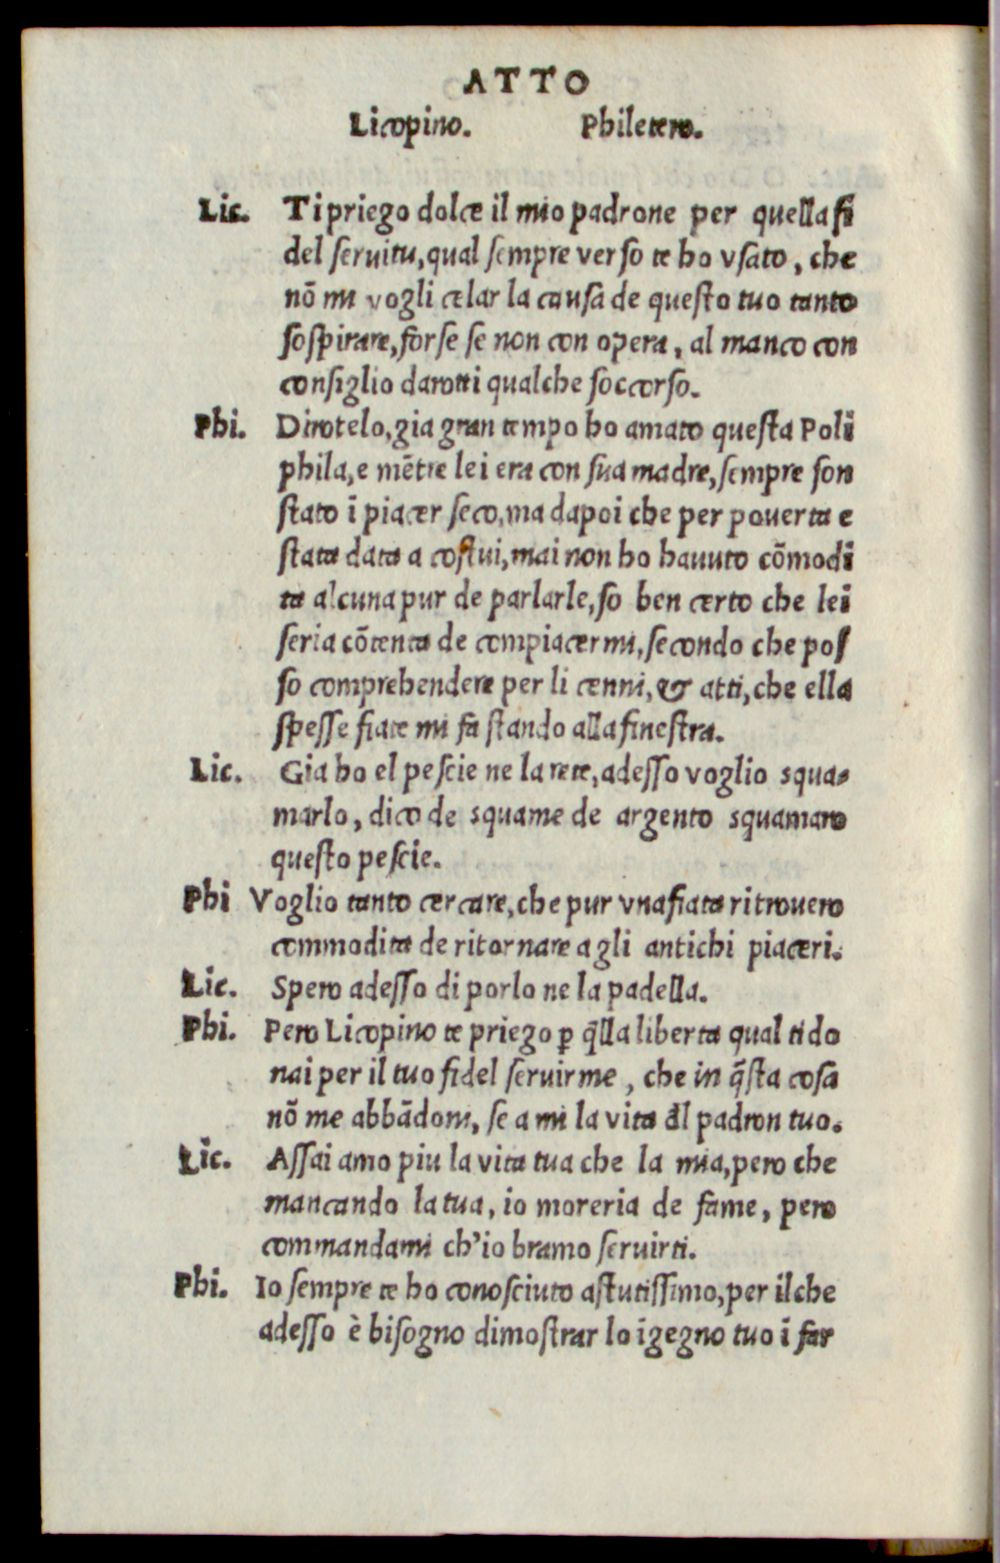 ATTO
Licopino. Philetero.
Lic. Ti priego dolce il mio padrone per quella fi
del seruitu, qual sempre verso te ho vsato, che
nõ mi vogli celar la causa de questo tuo tanto
sospirare, forse se non con opera, al manco con
consiglio darotti qualche soccorso.
Phi. Dirotelo, gia gran tempo ho amato questa Polĩ
phila, e mẽtre lei era con sua madre, sempre son
stato ĩ piacer seco, ma dapoi che per pouerta e
stata data a costui, mai non ho hauuto cõmodi
ta alcuna pur de parlarle, so ben certo che lei
seria cõtenta de compiacermi, secondo che pos
so comprehendere per li cenni, & atti, che ella
spesse fiate mi fa stando alla finestra.
Lic. Gia ho el pescie ne la rete, adesso voglio squa-
marlo, dico de squame de argento squamaro
questo pescie.
Phi Voglio tanto cercare, che pur vna fiata ritrouero
commodita de ritornare a gli antichi piaceri.
Lic. Spero adesso di porlo ne la padella.
Phi. Pero Licopino te priego ꝑ q̃lla liberta qual ti do
nai per il tuo fidel seruirme, che in q̃sta cosa
nõ me abbãdoni, se ami la vita d̃l padron tuo.
Lic. Assai amo piu la vita tua che la mia, pero che
mancando la tua, io moreria de fame, pero
commandami ch'io bramo seruirti.
Phi. Io sempre te ho conosciuto astutissimo, per ilche
adesso è bisogno dimostrar lo ĩgegno tuo ĩ far